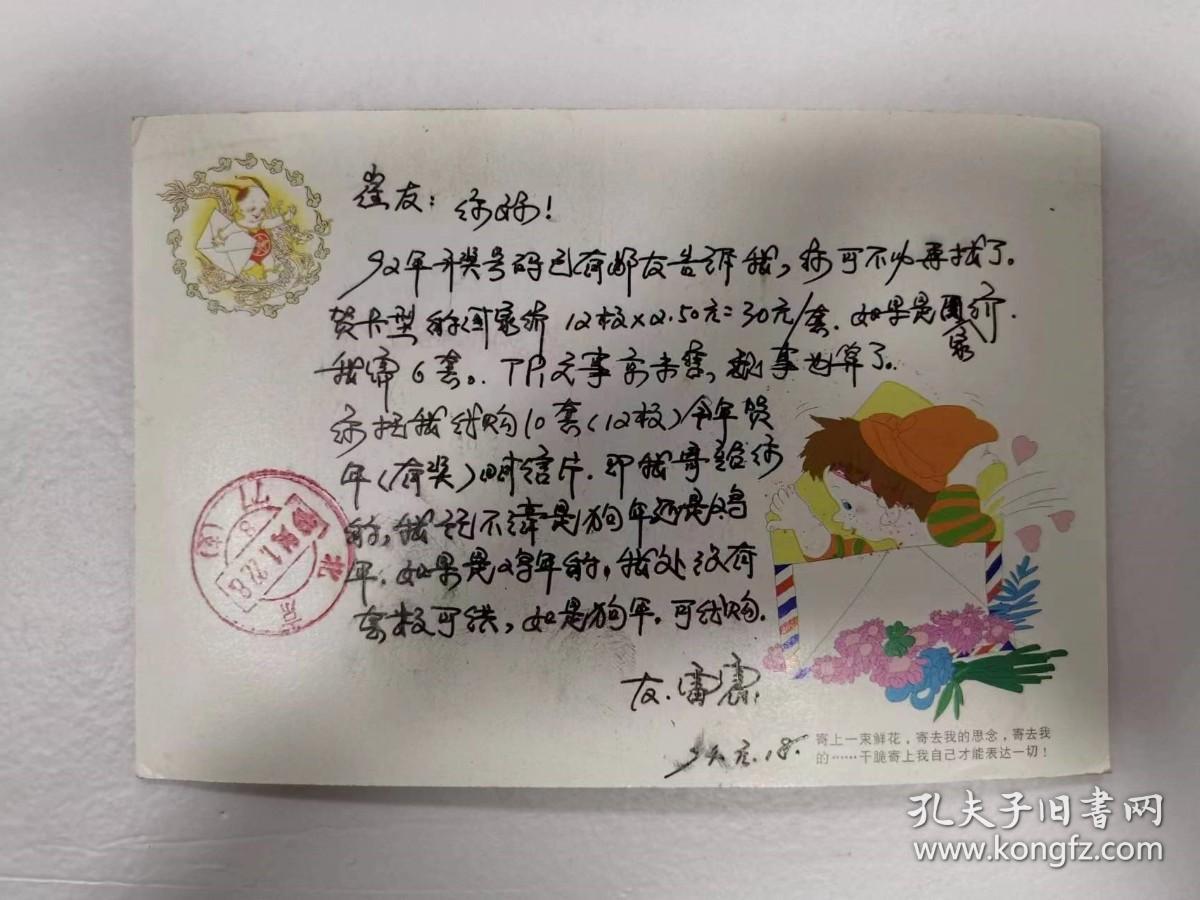 崔友：你好！
92年开奖号码已有邮友告诉我，你可不必再找了。
贺卡型的国家价 12枚×2.50元=30元/套. 如果是国家价.
我需6套。TP,文事前未, 此事也算了。
你托我代购10套(12枚)今年贺
年(有奖)明信片. 即我寄给你
的, 我记不清是狗年还是鸡
年. 如果是鸡年的, 我处没有
套数可供, 如是狗年, 可代购.
友. 雷震
94.元.18.
北京
寄上一束鲜花，寄去我的思念，寄去我
的……干脆寄上我自己才能表达一切！
孔夫子旧书网
www.kongfz.com